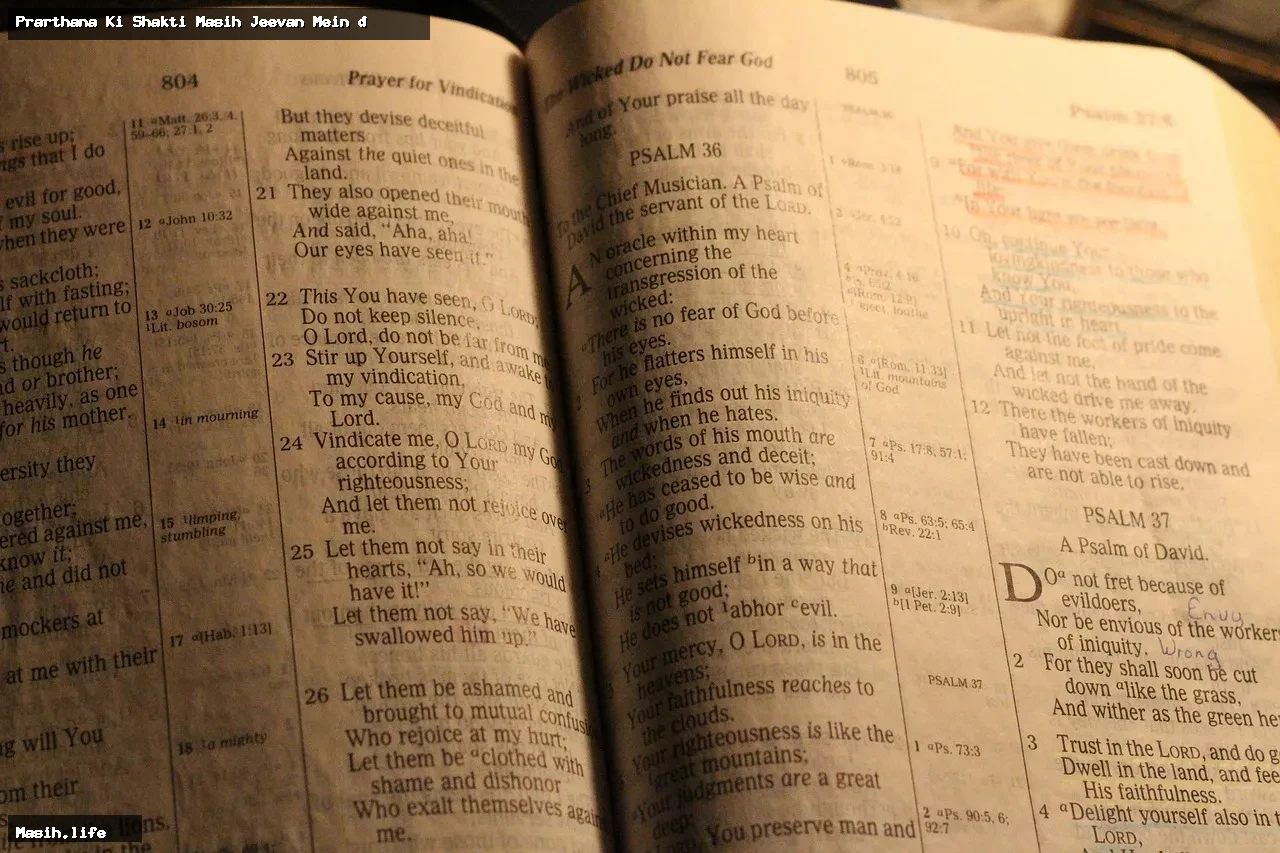 Prarthana Ki Shakti Masih Jeevan Mein d
804
Prayer for Vindication
s rise up;
ngs that I do
evil for good,
my soul.
when they were
s sackcloth;
lf with fasting;
would return to
s though he
nd or brother;
heavily, as one
for his mother.
ersity they
ogether;
ered against me,
know it;
e and did not
mockers at
at me with their
g will You
om their
lions.
11 aMatt. 26:3, 4,
59–66; 27:1, 2
12 aJohn 10:32
13 aJob 30:25
1Lit. bosom
14 1in mourning
15 1limping,
stumbling
17 a[Hab. 1:13]
18 1a mighty
But they devise deceitful
matters
Against the quiet ones in the
land.
21 They also opened their mouth
wide against me,
And said, “Aha, aha!
Our eyes have seen it.”
22 This You have seen, O LORD;
Do not keep silence.
O Lord, do not be far from me
23 Stir up Yourself, and awake
my vindication,
To my cause, my God and my
Lord.
24 Vindicate me, O LORD my God
according to Your
righteousness;
And let them not rejoice over
me.
25 Let them not say in their
hearts, “Ah, so we would
have it!”
Let them not say, “We have
swallowed him up.”
26 Let them be ashamed and
brought to mutual confus
Who rejoice at my hurt;
Let them be aclothed with
shame and dishonor
Who exalt themselves again
me.
The Wicked Do Not Fear God
805
And of Your praise all the day
long.
PSALM 36
To the Chief Musician. A Psalm of
David the servant of the LORD.
AN oracle within my heart
concerning the
transgression of the
wicked:
aThere is no fear of God before
his eyes.
2 For he flatters himself in his
own eyes,
When he finds out his iniquity
and when he hates.
3 The words of his mouth are
wickedness and deceit;
aHe has ceased to be wise and
to do good.
4 aHe devises wickedness on his
bed;
He sets himself bin a way that
is not good;
He does not 1abhor cevil.
Your mercy, O LORD, is in the
heavens;
Your faithfulness reaches to
the clouds.
Your righteousness is like the
great mountains;
aYour judgments are a great
deep;
You preserve man and
6 a[Rom. 11:33]
1Lit. mountains
of God
7 aPs. 17:8; 57:1;
91:4
8 aPs. 63:5; 65:4
bRev. 22:1
9 a[Jer. 2:13]
b[1 Pet. 2:9]
PSALM 37
1 aPs. 73:3
2 aPs. 90:5, 6;
92:7
Psalm 37:
10
know You,
And Your righteousness to the
upright in heart.
11 Let not the foot of pride come
against me,
And let not the hand of the
wicked drive me away.
12 There the workers of iniquity
have fallen;
They have been cast down and
are not able to rise.
PSALM 37
A Psalm of David.
DOa not fret because of
evildoers,
Envy
Nor be envious of the workers
of iniquity. Wrong
2 For they shall soon be cut
down alike the grass,
And wither as the green he
3 Trust in the LORD, and do g
Dwell in the land, and fee
His faithfulness.
4 aDelight yourself also in t
LORD,
Masih.life